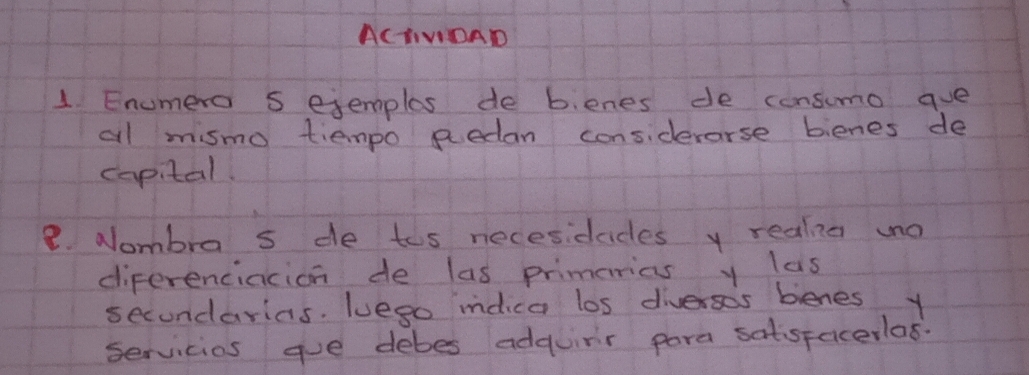 ACTIVIDAD
1. Enumera 5 ejemplos de bienes de consumo que
al mismo tiempo puedan considerarse bienes de
capital.
2. Nombra 5 de tus necesidades y realiza una
diferenciación de las primarias y las
secundarias. luego indica los diversos bienes y
servicios que debes adquirir para satisfacerlas.